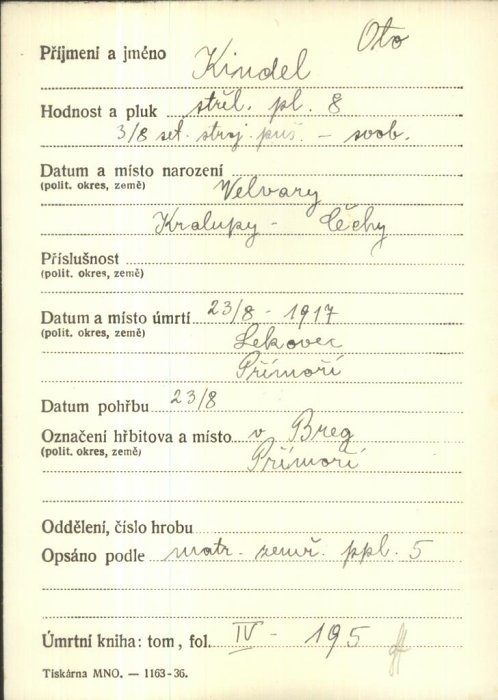 Oto
Příjmení a jméno Kindel
Hodnost a pluk střel. pl. 8
3/8 set. stroj. puš. - svob.
Datum a místo narození
(polit. okres, země) Welvary
Kralupy - Čechy
Příslušnost
(polit. okres, země)
Datum a místo úmrtí 23/8 - 1917
(polit. okres, země) Lekovec
Přímoří
Datum pohřbu 23/8
Označení hřbitova a místo v Breg
(polit. okres, země) Přímoří
Oddělení, číslo hrobu
Opsáno podle matr. zemř. ppl. 5
Úmrtní kniha: tom, fol. IV - 195
Tiskárna MNO. — 1163-36.